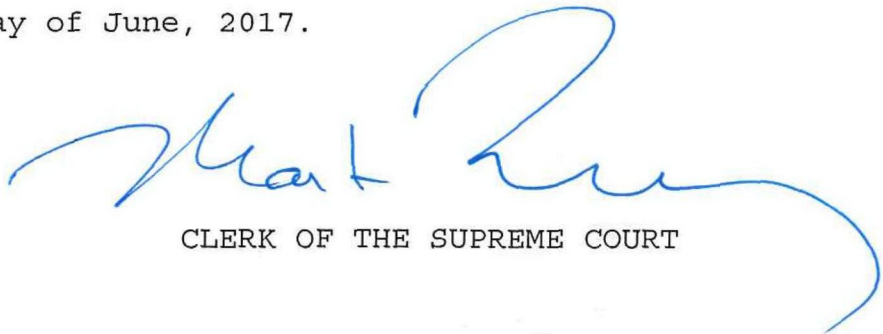 ay of June, 2017.
Mark
CLERK OF THE SUPREME COURT